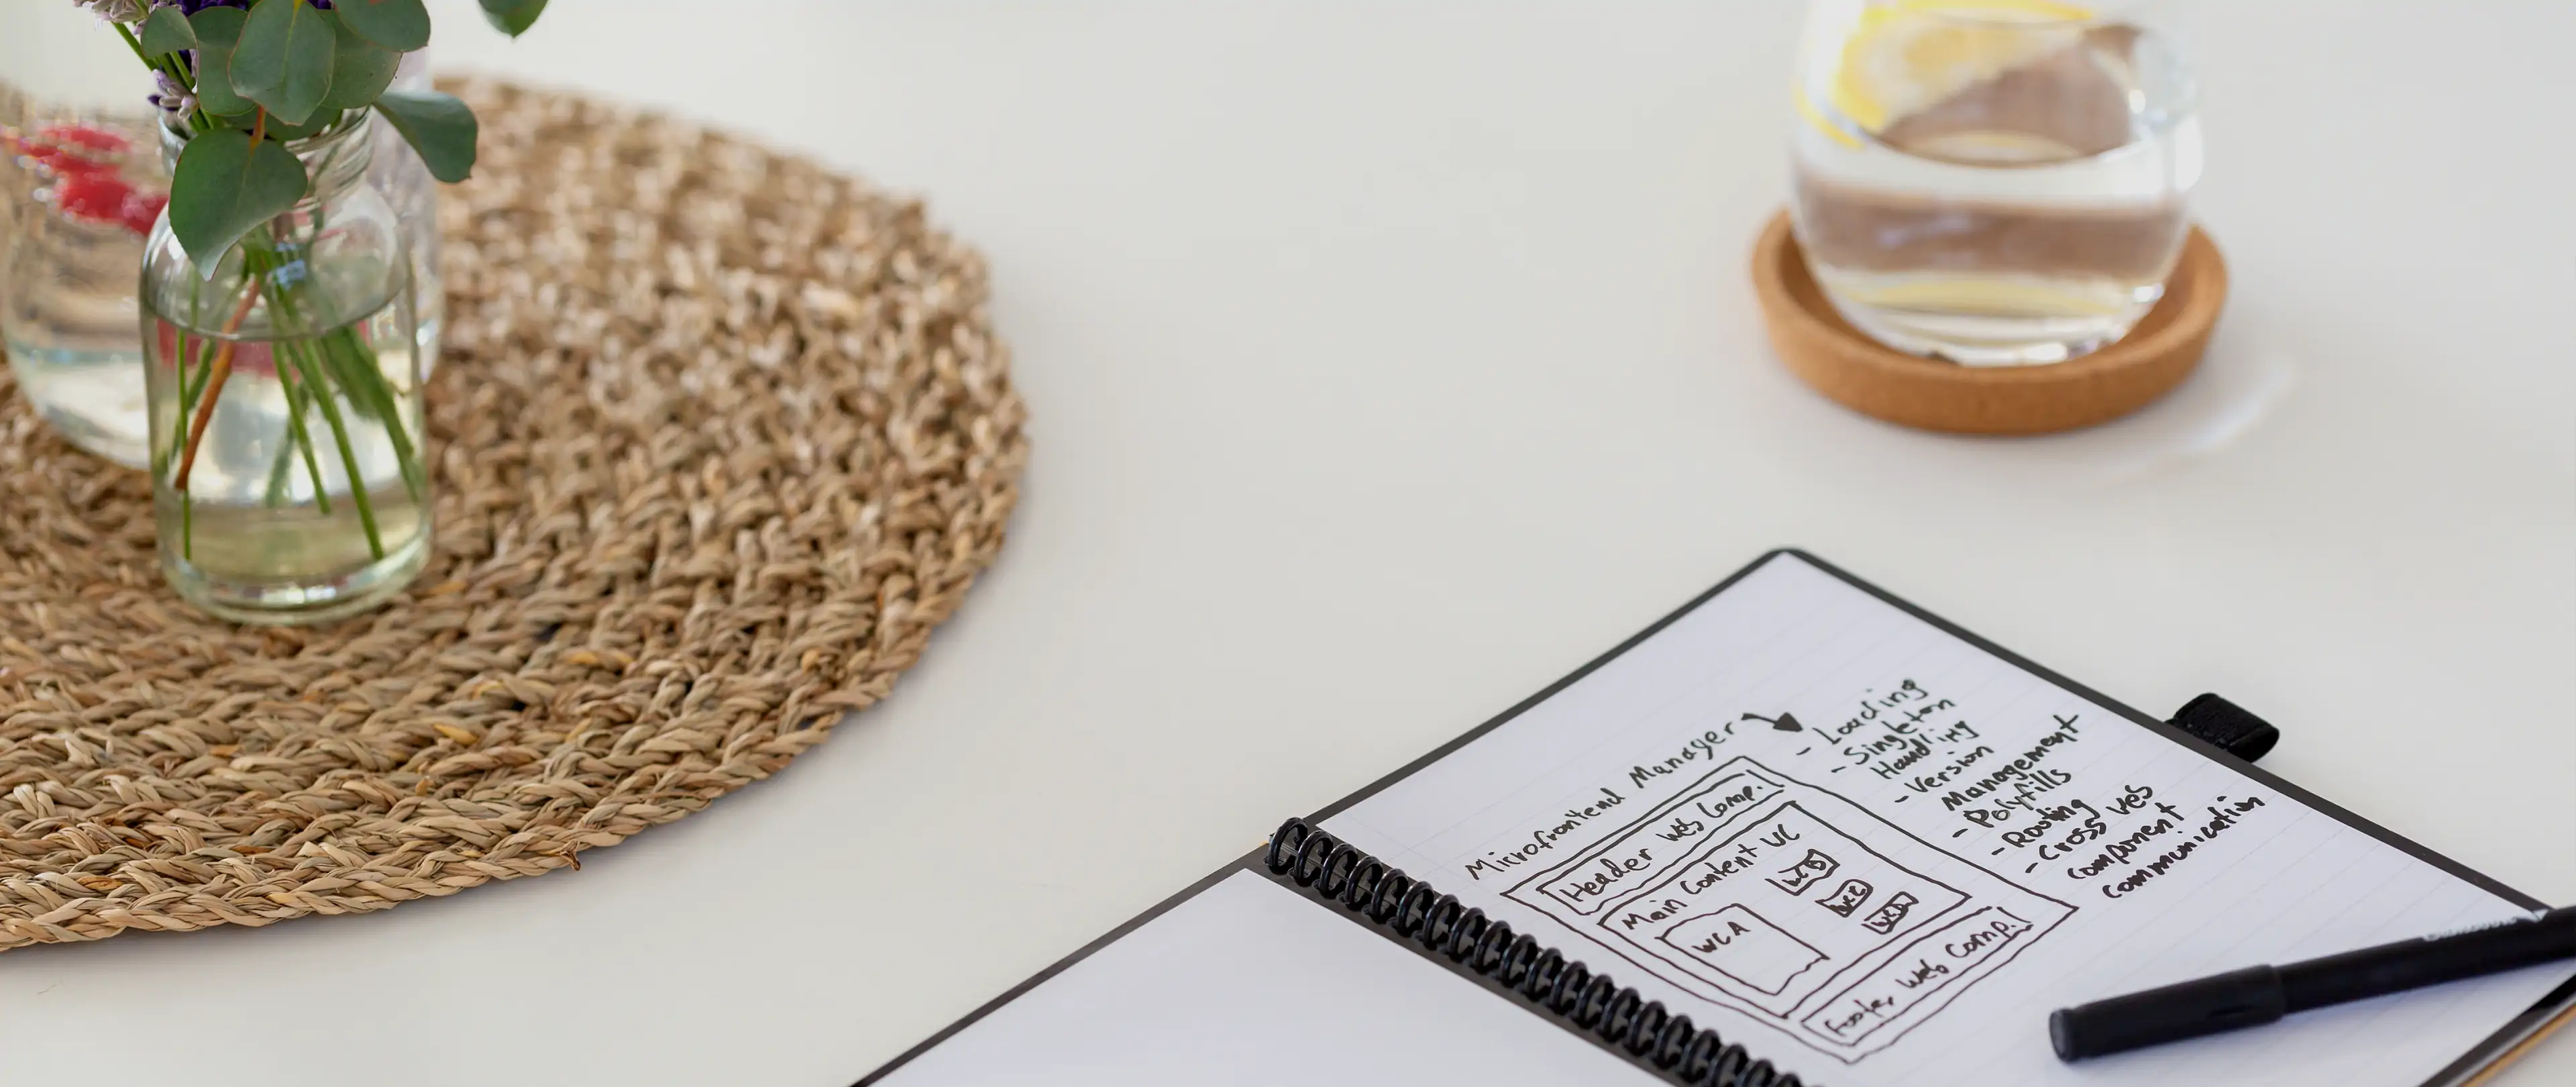 Microfrontend Manager
Header Web Comp.
Main Content WC
WCA
WCB
WCC
WCD
Footer Web Comp.
- Loading
- Singleton
Handling
- Version
Management
- Polyfills
- Routing
- Cross Web
Component
Communication